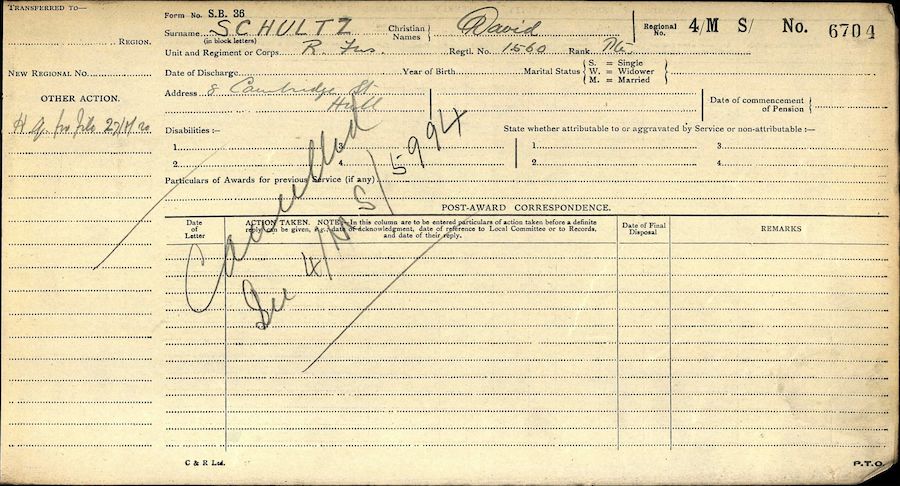 TRANSFERRED TO—
REGION.
NEW REGIONAL NO.
OTHER ACTION.
Form No. S.B. 36
Surname SCHULTZ Christian Names David Regional No. 4/M S/ No. 6704
(in block letters)
Unit and Regiment or Corps. R. Fus Regtl. No. 1560 Rank Pte.
Date of Discharge Year of Birth Marital Status S. = Single
W. = Widower
M. = Married
Address 8 Cambridge St
Hull
Date of commencement of Pension
Disabilities :— State whether attributable to or aggravated by Service or non-attributable :—
1. 3. 1. 3.
2. 4. 2. 4.
Particulars of Awards for previous Service (if any)
Cancelled
See 4/MS/5994
POST-AWARD CORRESPONDENCE.
Date of Letter
ACTION TAKEN. NOTE.—In this column are to be entered particulars of action taken before a definite
reply can be given, e.g., date of acknowledgment, date of reference to Local Committee or to Records,
and date of their reply.
Date of Final Disposal
REMARKS
C & R Ltd.
P.T.O.